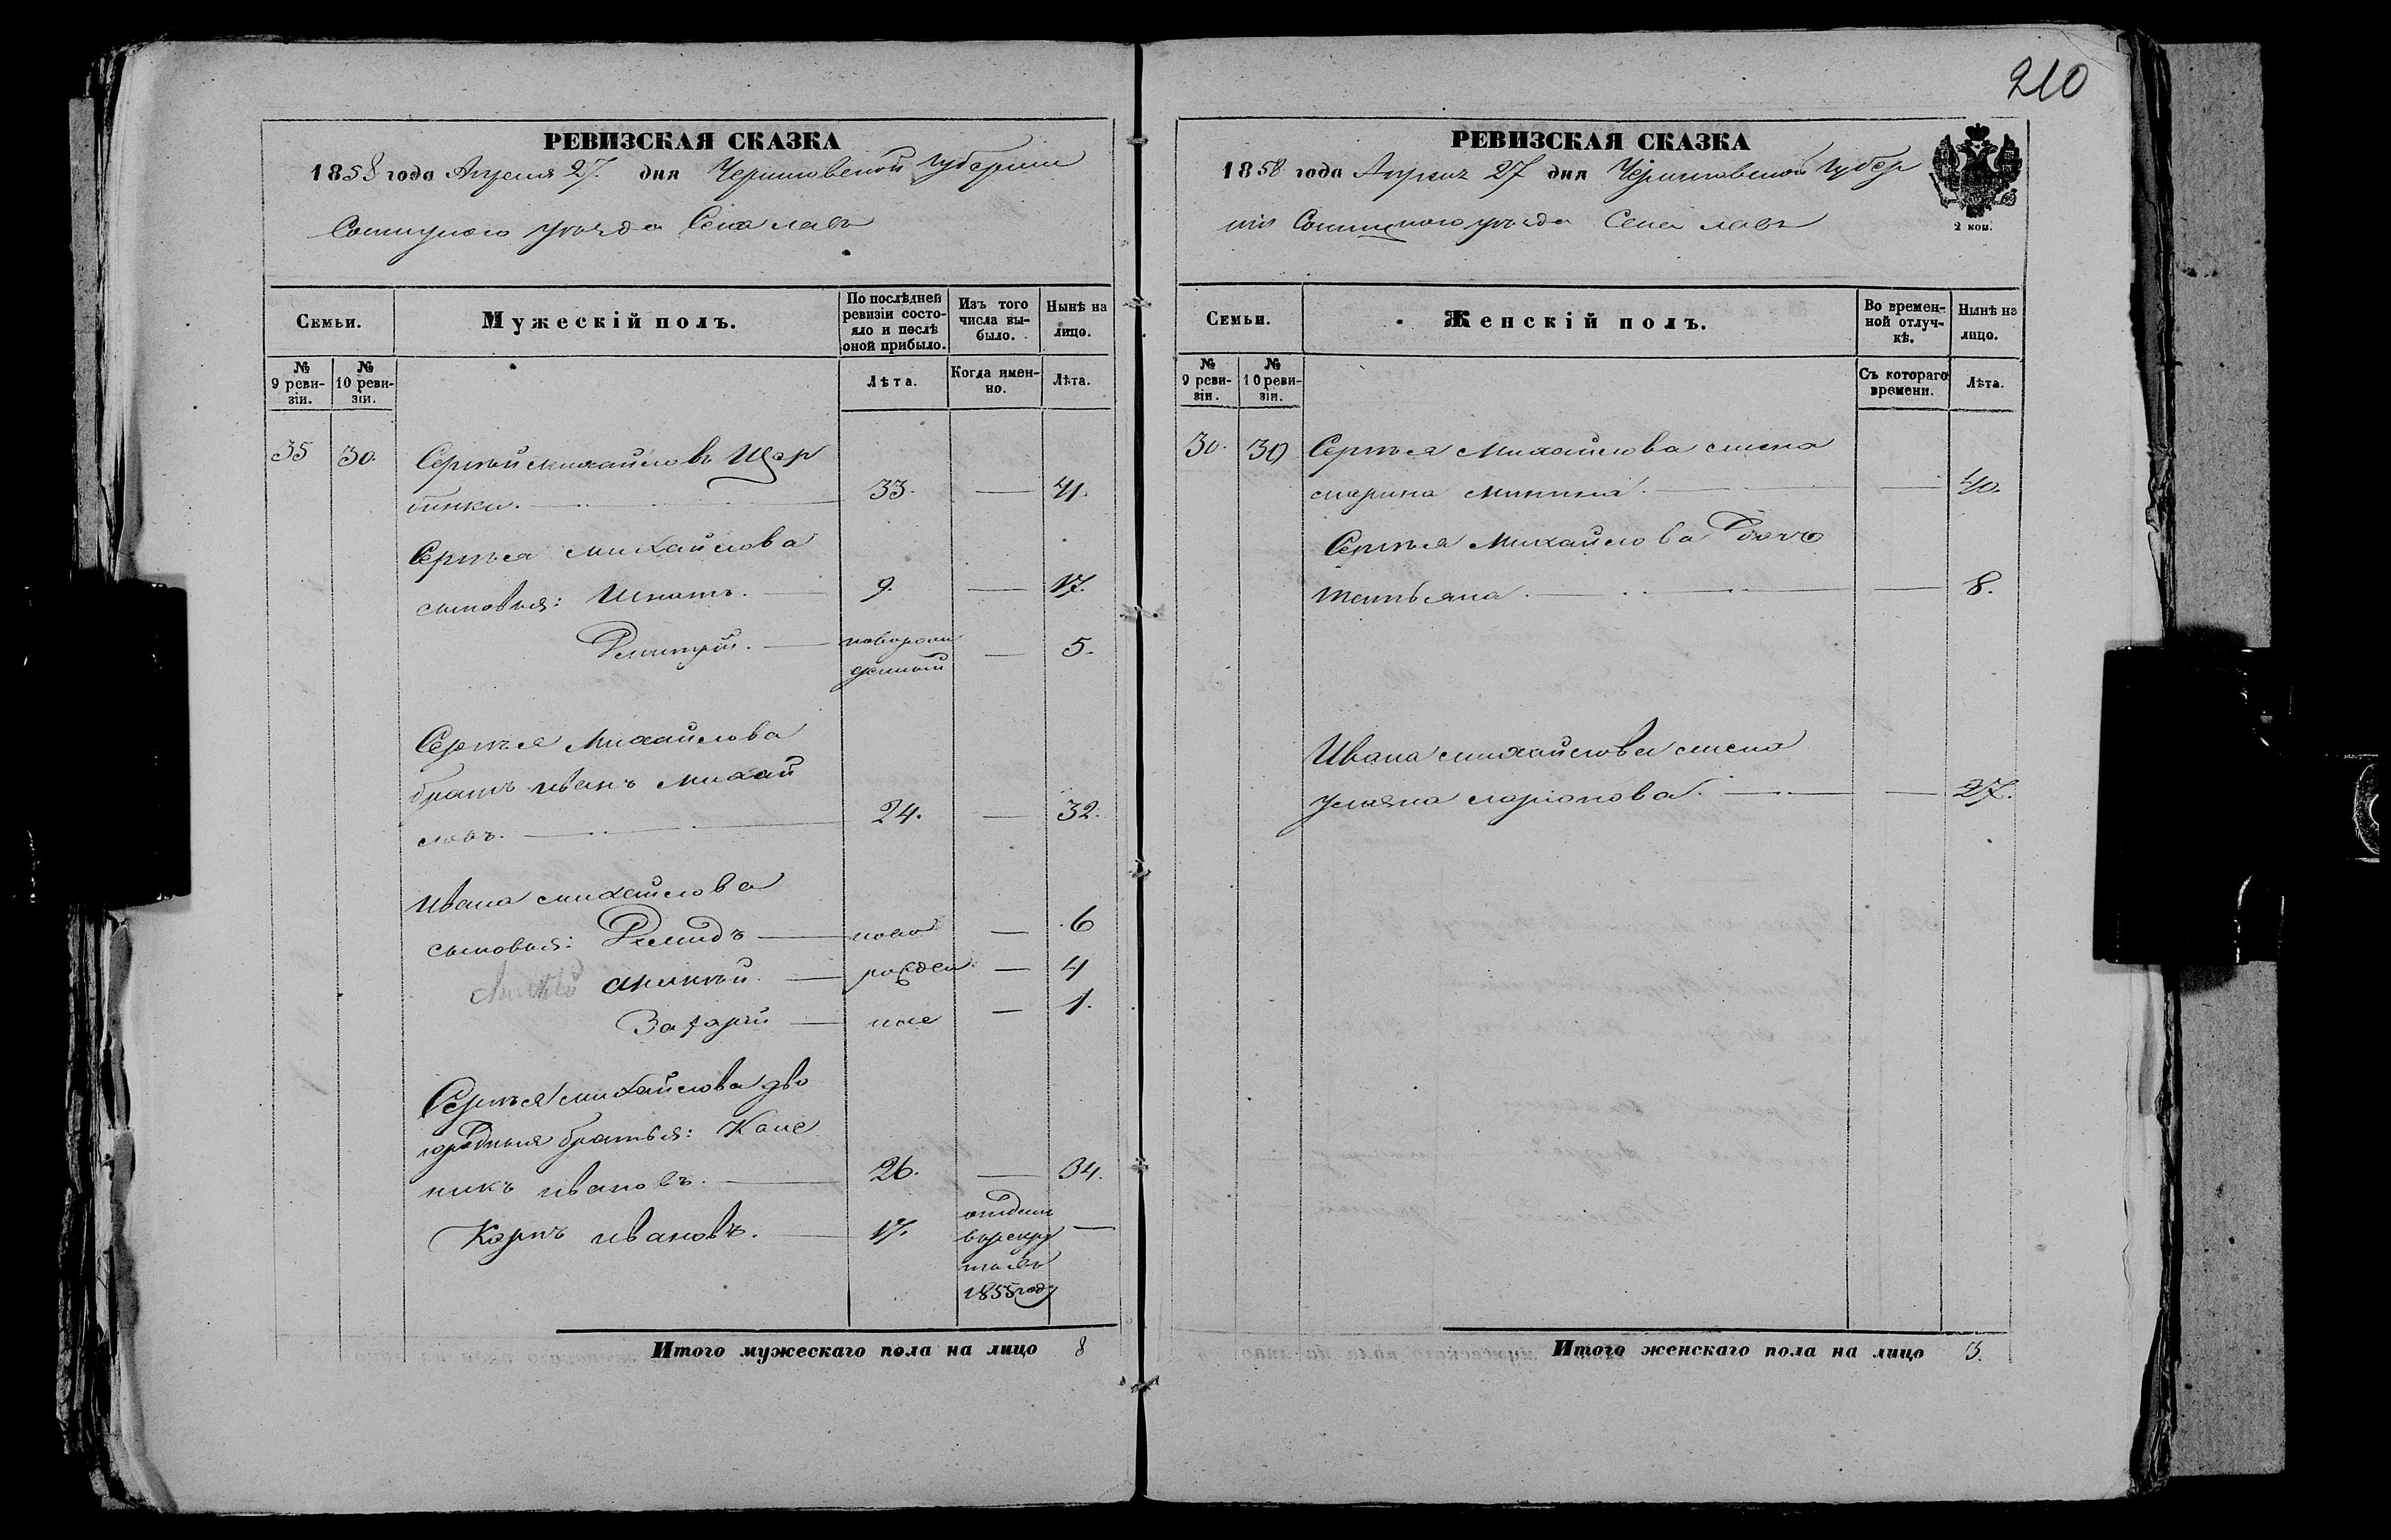 210
РЕВИЗСКАЯ СКАЗКА
1858 года Апреля 27. дня Черниговской губернии
Сосницкаго уѣзда Села
Семьи.
Мужескій полъ.
По послѣдней ревизіи состояло и послѣ оной прибыло.
Изъ того числа выбыло.
Нынѣ на лицо.
№ 9 ревизіи.
№ 10 ревизіи.
Лѣта.
Когда именно.
Лѣта.
35 30. Сергѣй Михайловъ Щер
бинка. 33. — 41.
Сергѣя Михайлова
сыновья: Игнатъ. 9. — 17.
Дмитрій. новорож
денный — 5.
Сергѣя Михайлова
братъ Иванъ Михай
ловъ. 24. — 32.
Ивана Михайлова
сыновья: ново — 6
рожден — 4
Захарій ные — 1.
Сергѣя Михайлова дво
юродныя братья:
никъ Ивановъ. 26. — 34.
Карпъ Ивановъ. 17. отдан
в рекру
ты въ
1855 году —
Итого мужескаго пола на лицо 8
РЕВИЗСКАЯ СКАЗКА
1858 года Апреля 27 дня Черниговской Губер
ніи Сосницкаго уѣзда Села
2 коп.
Семьи.
Женскій полъ.
Во временной отлучкѣ.
Нынѣ на лицо.
№ 9 ревизіи.
№ 10 ревизіи.
Съ котораго времени.
Лѣта.
30. 30 Сергѣя Михайлова жена
Марина Минина. — 40.
Сергѣя Михайлова дочь
Татьяна. — 8.
Ивана Михайлова жена
Ульяна Ларіонова. — 27.
Итого женскаго пола на лицо 3.